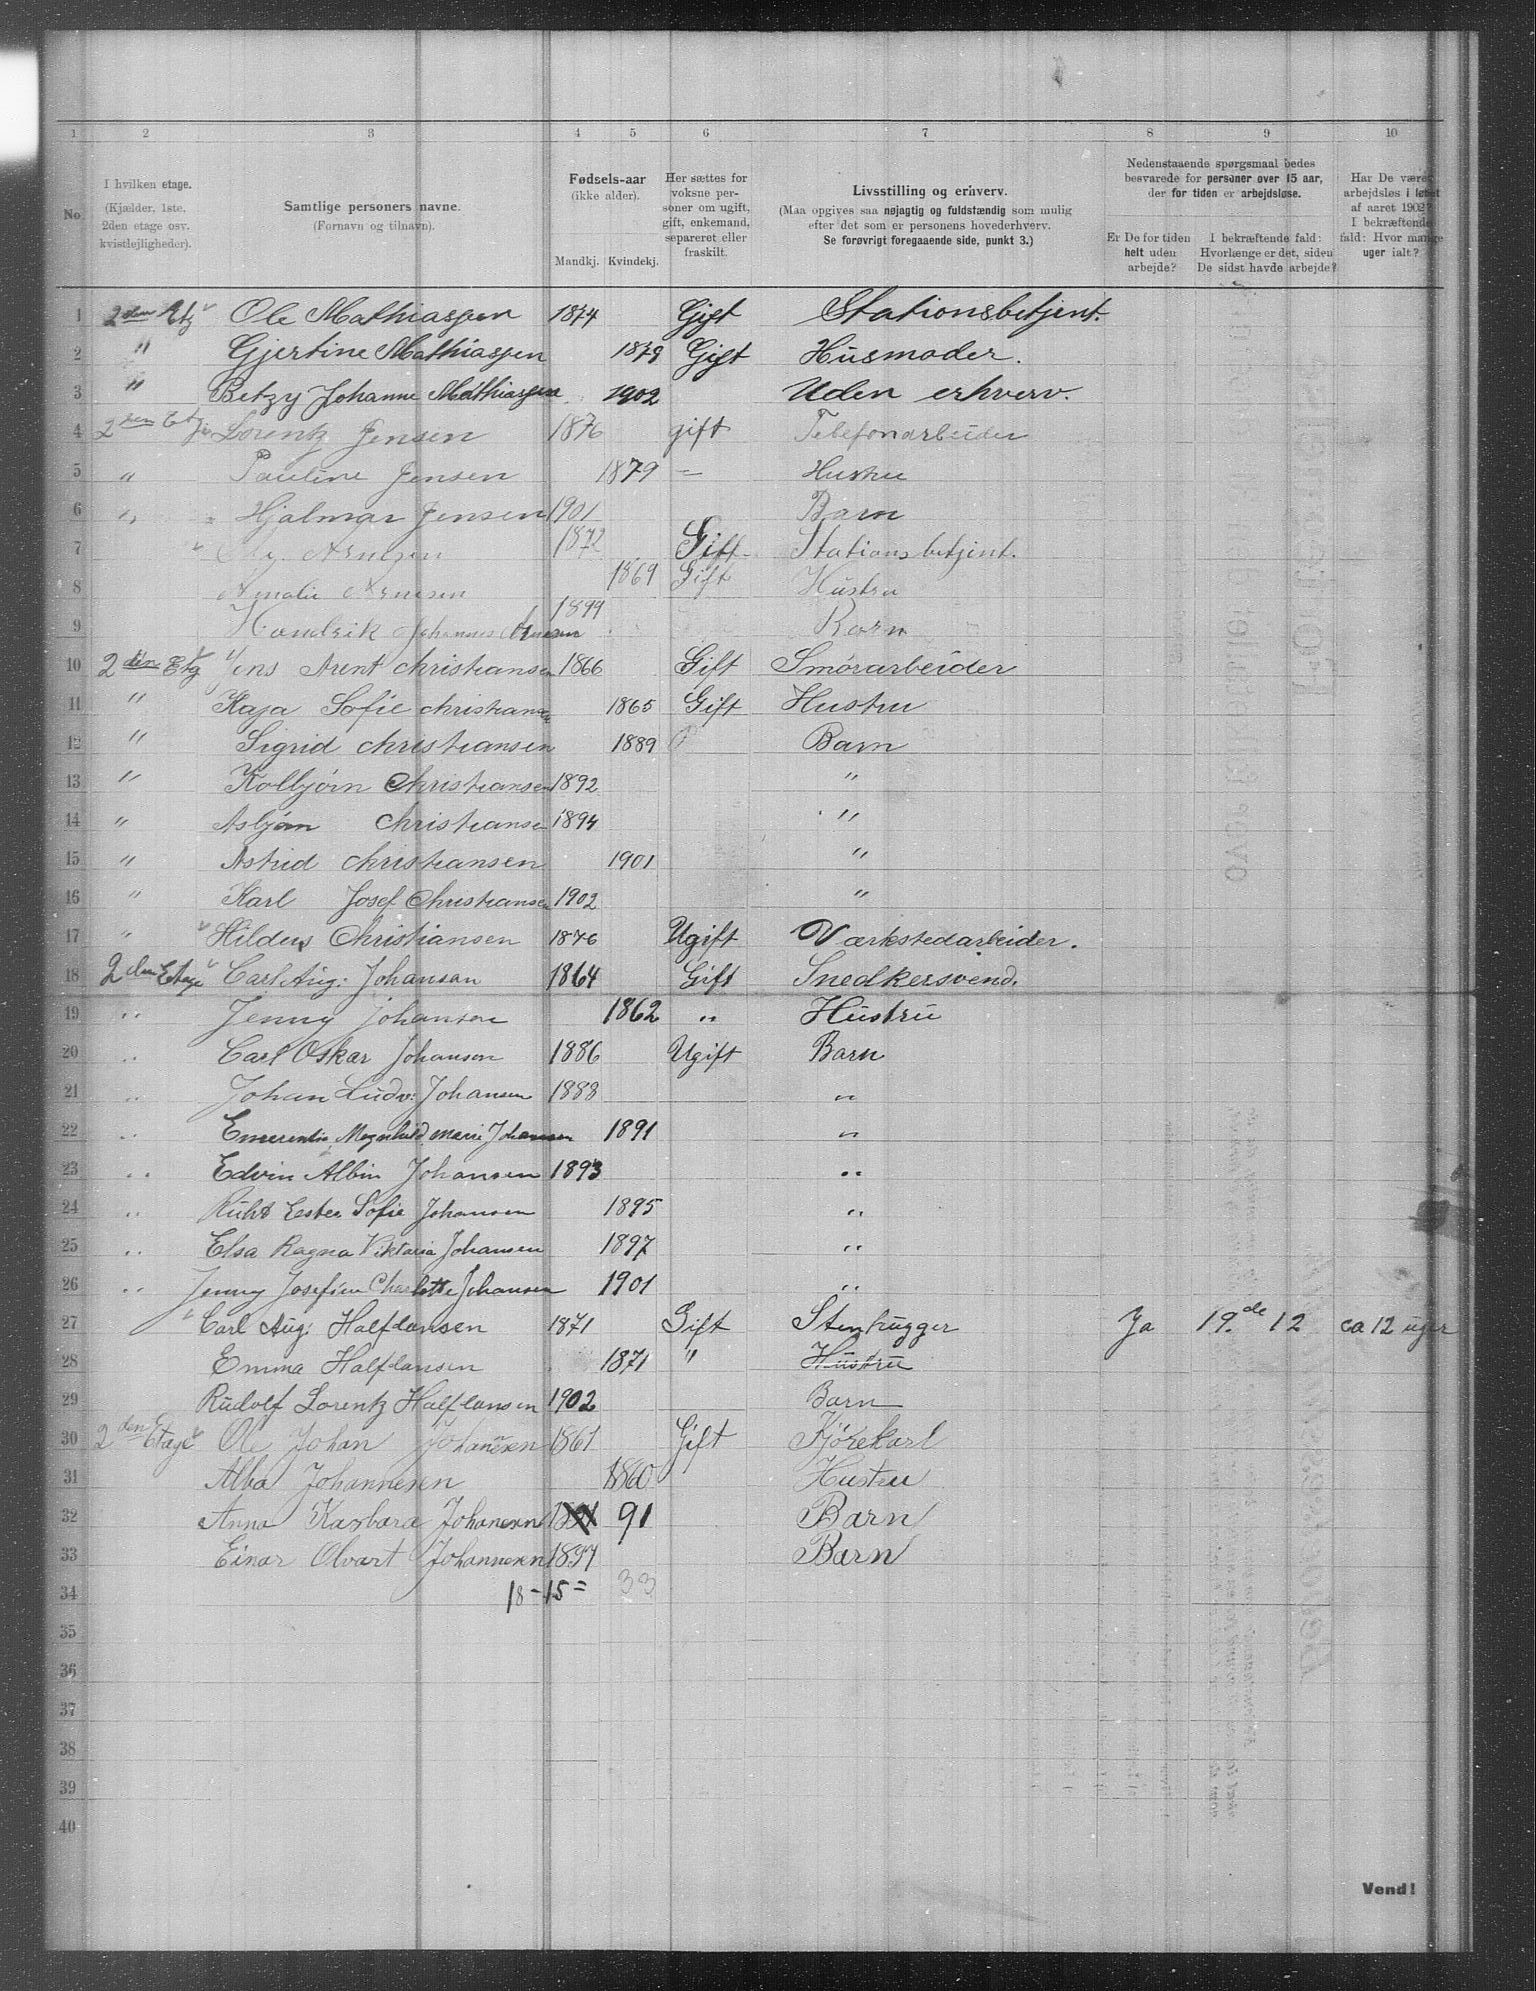 1 2 3 4 5 6 7 8 9 10
No.
I hvilken etage.
(Kjælder, 1ste.
2den etage osv.
kvistlejligheder).
Samtlige personers navne.
(Fornavn og tilnavn).
Fødsels-aar
(ikke alder).
Mandkj. Kvindekj.
Her sættes for
voksne per-
soner om ugift,
gift, enkemand,
separeret eller
fraskilt.
Livsstilling og erhverv.
(Maa opgives saa nøjagtig og fuldstændig som mulig
efter det som er personens hovederhverv.
Se forøvrigt foregaaende side, punkt 3.)
Nedenstaaende spørgsmaal bedes
besvarede for personer over 15 aar,
der for tiden er arbejdsløse.
Er De for tiden
helt uden
arbejde?
I bekræftende fald:
Hvorlænge er det, siden
De sidst havde arbejde?
Har De været
arbejdsløs i løbet
af aaret 1902?
I bekræftende
fald: Hvor mange
uger ialt?
1 2den Etg Ole Mathiassen 1874 Gift Stationsbetjent.
2 " Gjertine Mathiassen 1879 Gift Husmoder.
3 " Betzy Johanne Mathiassen 1902 Uden erhverv.
4 2den Etg Lorentz Jensen 1876 gift Telefonarbeider
5 " Pauline Jensen 1879 – Hustru
6 " Hjalmar Jensen 1901 Barn
7 Arntzen 1872 Gift Stationsbetjent.
8 Amalie Arntsen 1869 Gift Hustru
9 Hendrik Johannes Arntsen 1899 Barn
10 2den Etg Jens Arent Christiansen 1866 Gift Smørarbeider
11 " Kaja Sofie Christiansen 1865 Gift Hustru
12 " Sigrid Christiansen 1889 Barn
13 " Kolbjørn Christiansen 1892 "
14 " Asbjørn Christiansen 1894 "
15 " Astrid Christiansen 1901 "
16 " Karl Josef Christiansen 1902 "
17 " Christiansen 1876 Ugift Værkstedarbeider.
18 2den Etage Carl Aug: Johansen 1864 Gift Snedkersvend.
19 " Jenny Johansen 1862 " Hustru
20 " Carl Oskar Johansen 1886 Ugift Barn
21 " Johan Ludv: Johansen 1888 "
22 " Emerentie Magnhild Marie Johansen 1891 "
23 " Edvin Albin Johansen 1893 "
24 " Ruht Ester Sofie Johansen 1895 "
25 " Elsa Ragna Viktoria Johansen 1897 "
26 " Jenny Josefine Charlotte Johansen 1901 "
27 Carl Aug: Halfdansen 1871 Gift Stenhugger Ja 19.de 12 ca 12 uger
28 Emma Halfdansen 1871 " Hustru
29 Rudolf Lorentz Halfdansen 1902 Barn
30 2den Etage Ole Johan Johannesen 1861 Gift Kjørekarl
31 Alba Johannesen 1860 Hustru
32 Anna Kasbara Johannesen 91 Barn
33 Einar Olvart Johannesen 1897 Barn
34 18 – 15 = 33
35
36
37
38
39
40
Vend!